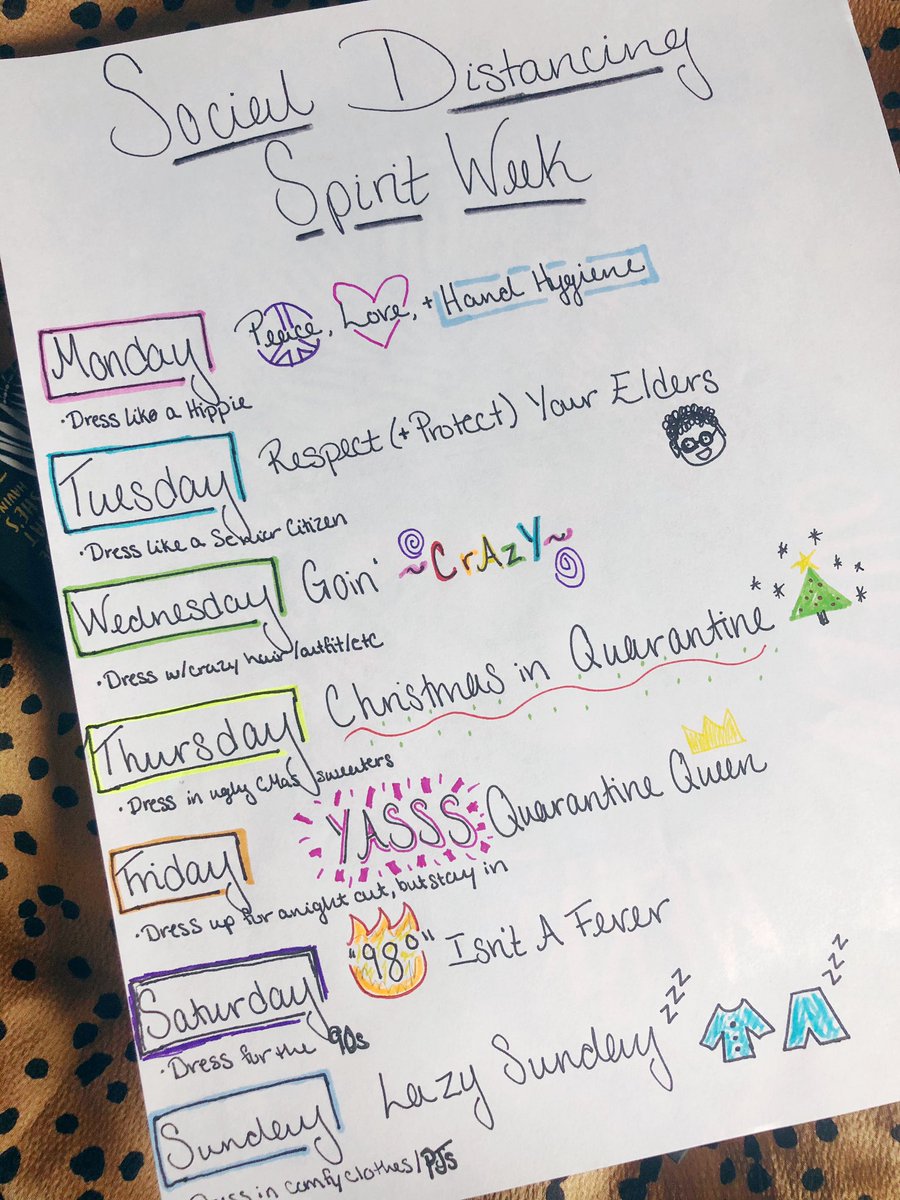 Social Distancing
Spirit Week
Monday Peace, Love, + Hand Hygiene
· Dress like a Hippie
Tuesday Respect (+ Protect) Your Elders
· Dress like a Senior Citizen
Wednesday Goin' ~CrAzY~
· Dress w/crazy hair/outfit/etc
Thursday Christmas in Quarantine
· Dress in ugly CMas sweaters
Friday YASSS Quarantine Queen
· Dress up for a night out, but stay in
Saturday "98°" Isn't A Fever
· Dress for the 90s
Sunday Lazy Sunday zzz zzz
Dress in comfy clothes/PJs